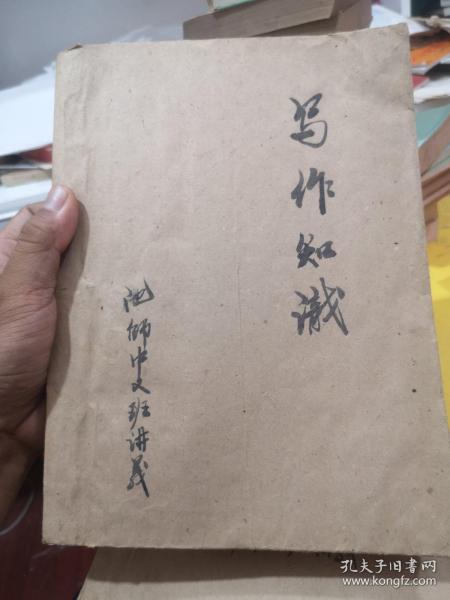 写作知识
师中文班讲义
孔夫子旧书网
www.kongfz.com